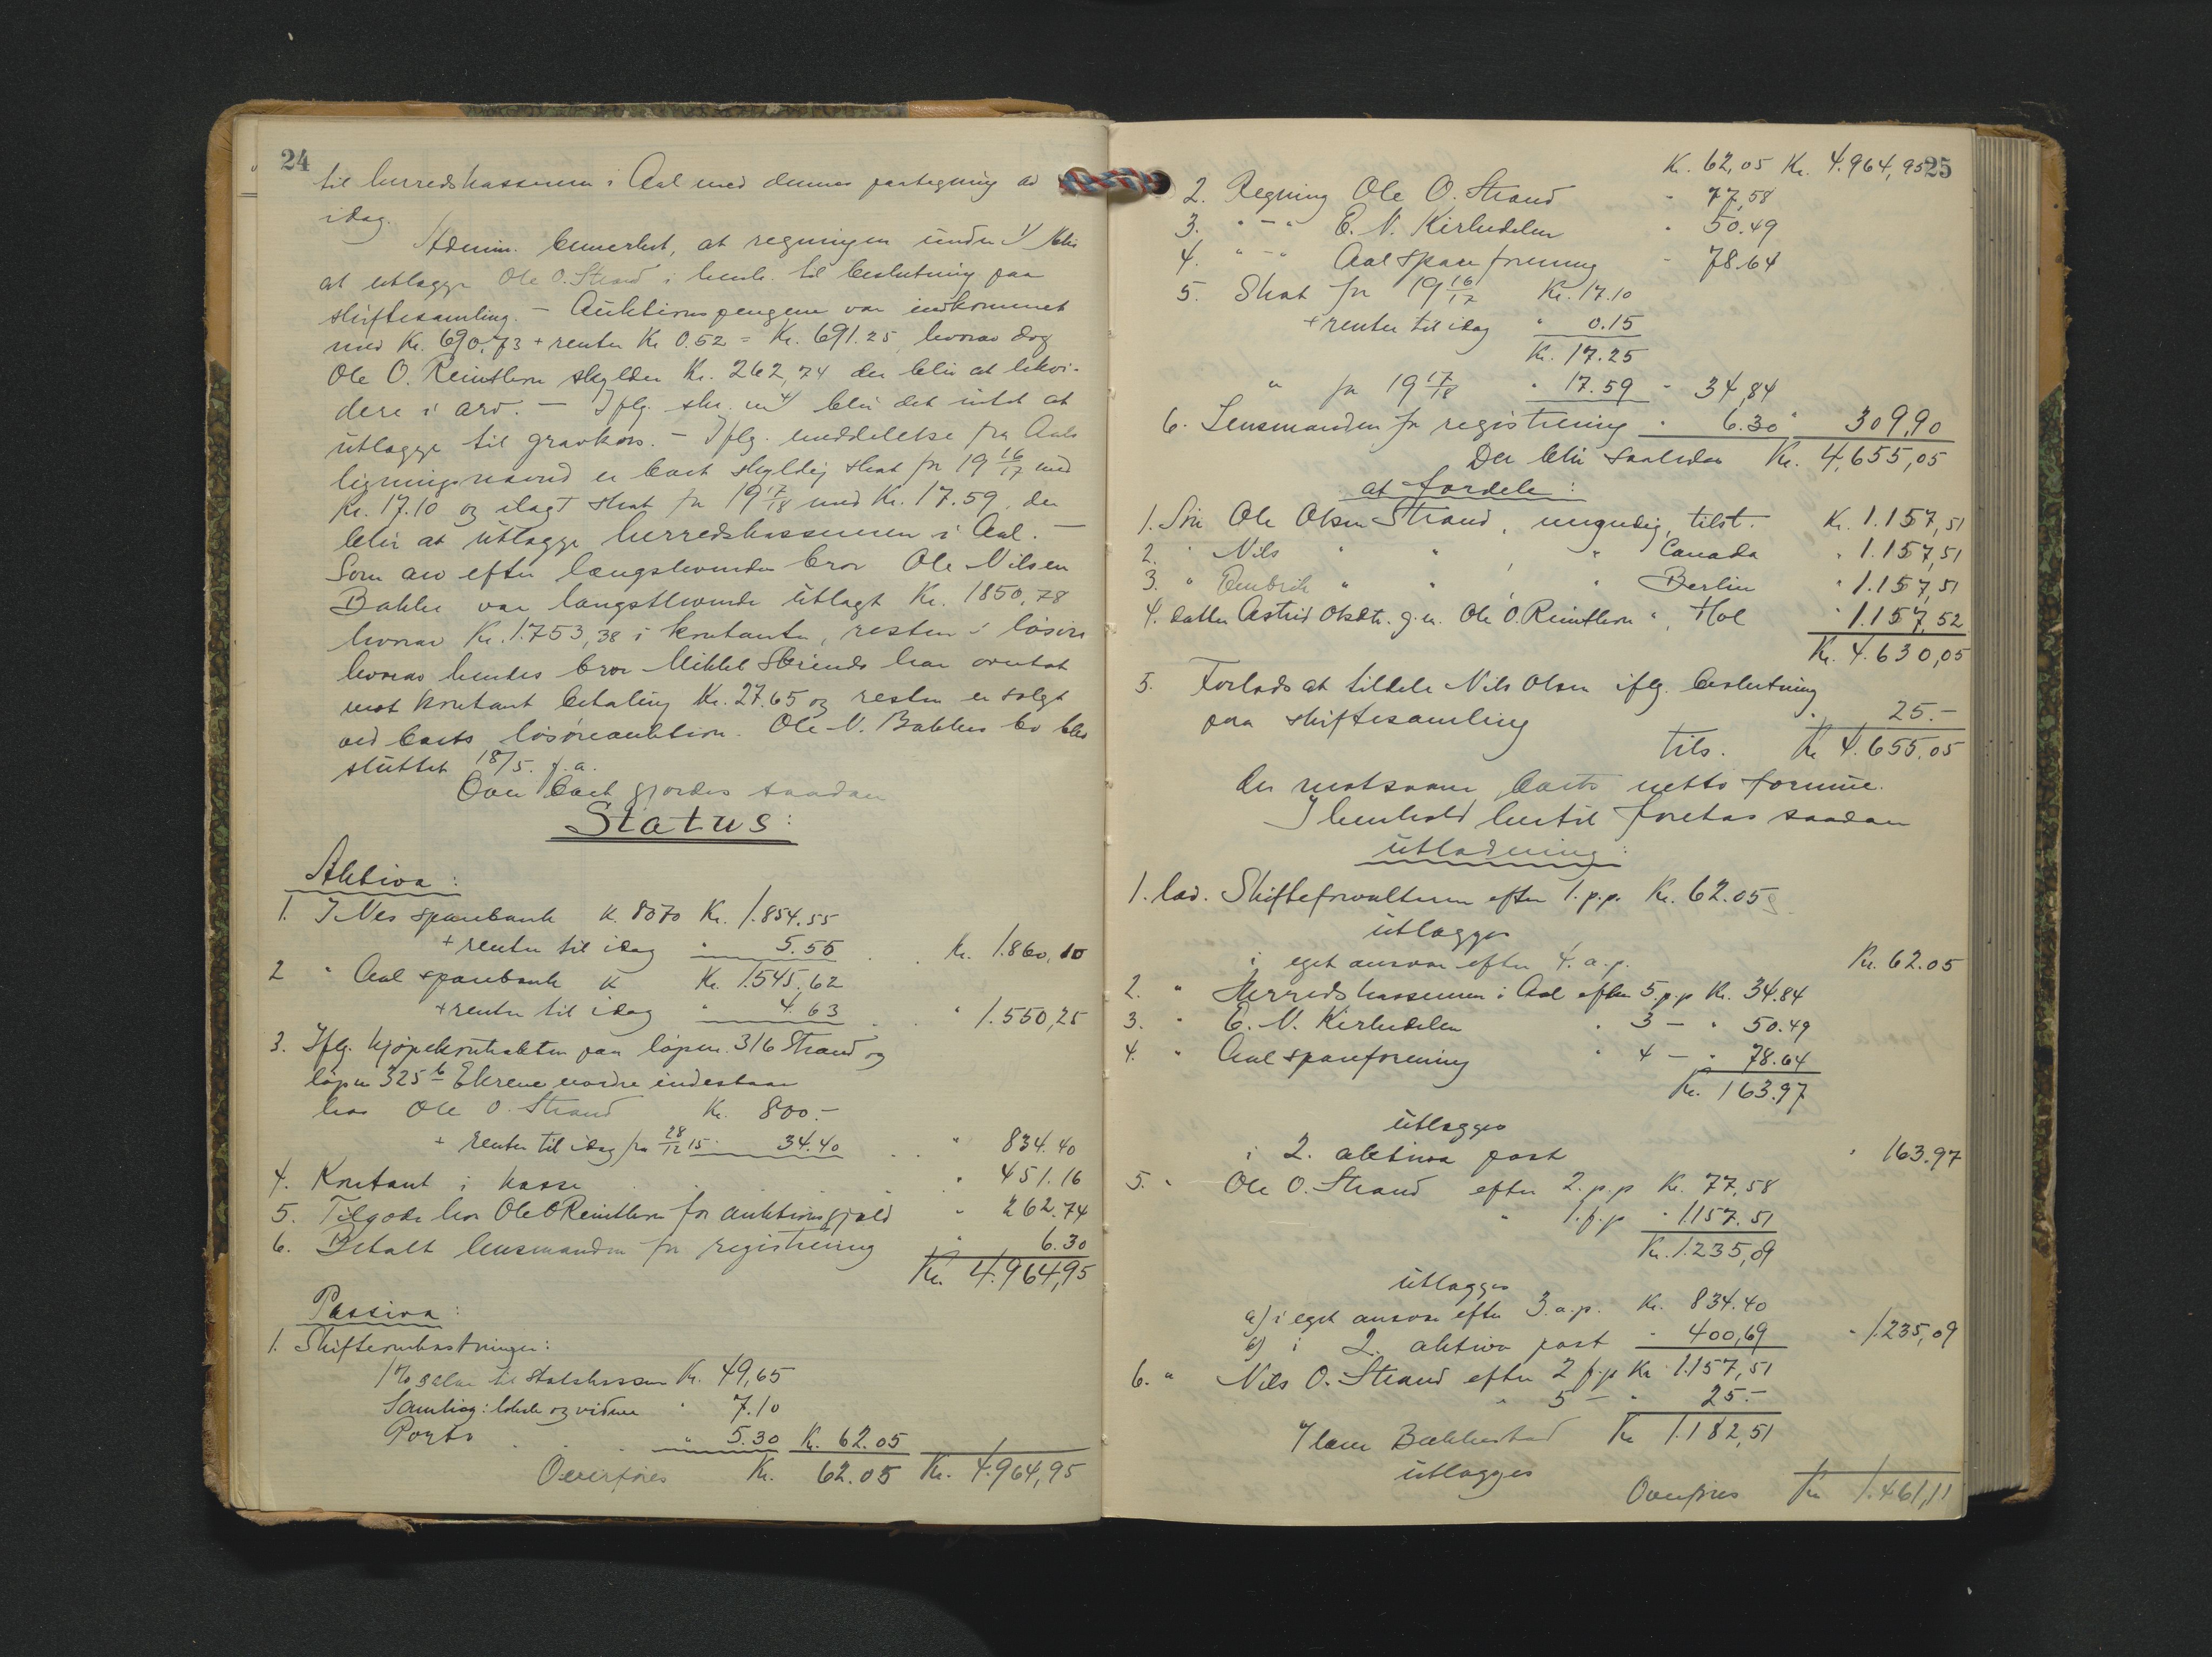 24
til herredskasseren i Aal med dennes paategning av
idag.
Admin. bemerket, at regningen under 1/ blir
at utlægge Ole O. Strand i henh. til beslutning paa
skiftesamling. – Auktionspengene var indkommet
med Kr. 690,73 + renter Kr 0.52 = Kr. 691.25, hvorav dog
Ole O. Reinthon skylder Kr. 262,74 der blir at likvi-
dere i arv. – Iflg. skr. blir det intet at
utlægge til gravkors. – Iflg. meddelelse fra Aals
ligningsnævnd er boet skyldig skat for 19 16/17 med
Kr. 17.10 og ilagt skat for 19 17/18 med Kr. 17.59, der
blir at utlægge herredskasseren i Aal. –
Som arv efter længstlevendes bror Ole Nilsen
Bakke var længstlevende utlagt Kr. 1850,78
hvorav Kr. 1.753,38 i kontanter, resten i løsøre
hvorav hendes bror Mikkel har overtat
mot kontant betaling Kr. 27.65 og resten er solgt
ved boets løsøreauktion. Ole N. Bakkes bo blev
sluttet 18/5. f.a.
Over boet gjordes saadan
Status:
Aktiva:
1. I Nes sparebank K. 8070 Kr. 1.854.55
+ renter til idag " 5.55 . . Kr. 1.860,10
2 " Aal sparebank K Kr. 1.545,62
+ renter til idag " 4.63 . . " 1.550,25
3. Iflg. kjøpekontrakten paa løpen. 316 Strand og
løpen 325 b Ekrene nordre indestaar
hos Ole O. Strand Kr. 800.–
+ renter til idag fra 28/12 15 " 34.40 . . " 834.40
4. Kontant i kasse . . . " 451.16
5. Tilgode hos Ole O Reinthon for auktionsgjæld " 262.74
6. Betalt lensmanden for registrering " 6.30
Kr. 4.964,95
Passiva:
1. Skifteomkostninger:
1% til statskassen Kr. 49,65
Samling: lokale og vidner " 7.10
Porto . . . " 5.30 Kr. 62.05
Overføres Kr. 62.05 Kr. 4.964,95
25
Kr. 62,05 Kr. 4.964,95
2. Regning Ole O. Strand " 77,58
3. " – " E. N. Kirkedelen " 50.49
4. " – " Aal spareforening " 78.64
5. Skat for 19 16/17 Kr. 17.10
+ renter til idag " 0.15
Kr. 17.25
" for 19 17/18 " 17.59 " 34,84
6. Lensmanden for registrering " 6.30 " 309,90
Der blir saaledes Kr. 4.655,05
at fordele:
1. Søn Ole Olsen Strand, myndig, tilst. Kr. 1.157,51
2. " Nils " " , " Canada " 1.157,51
3. " Embrik " " , " Berlin " 1.157,51
4. datter Astrid Olsdtr. g.m. Ole O. Reinthon ", Hol " 1.157,52
Kr. 4.630,05
5. Forlods at tildele Nils Olsen iflg. beslutning
paa skiftesamling " 25.–
Tils. Kr 4.655.05
der motsvarer boets netto formue.
I henhold hertil foretas saadan
utlodning:
1. lod. Skifteforvalteren efter 1.p.p. Kr. 62.05
utlægges
i eget ansvar efter 4. a.p. Kr. 62.05
2. " Herredskasseren i Aal efter 5.p.p Kr. 34.84
3. " E. N. Kirkedelen " 3 – " 50.49
4. " Aal spareforening " 4 – " 78.64
Kr. 163.97
utlægges
i 2. aktiva post " 163.97
5. " Ole O. Strand efter 2.p.p Kr. 77,58
" 1.f.p " 1157.51
Kr. 1.235,09
utlægges
a) i eget ansvar efter 3.a.p. Kr. 834.40
b) i 2. aktiva post " 400,69 " 1.235,09
6. " Nils O. Strand efter 2 f.p Kr 1.157,51
" 5 – " 25.–
Kr 1.182,51
utlægges
Overføres Kr 1.461,11